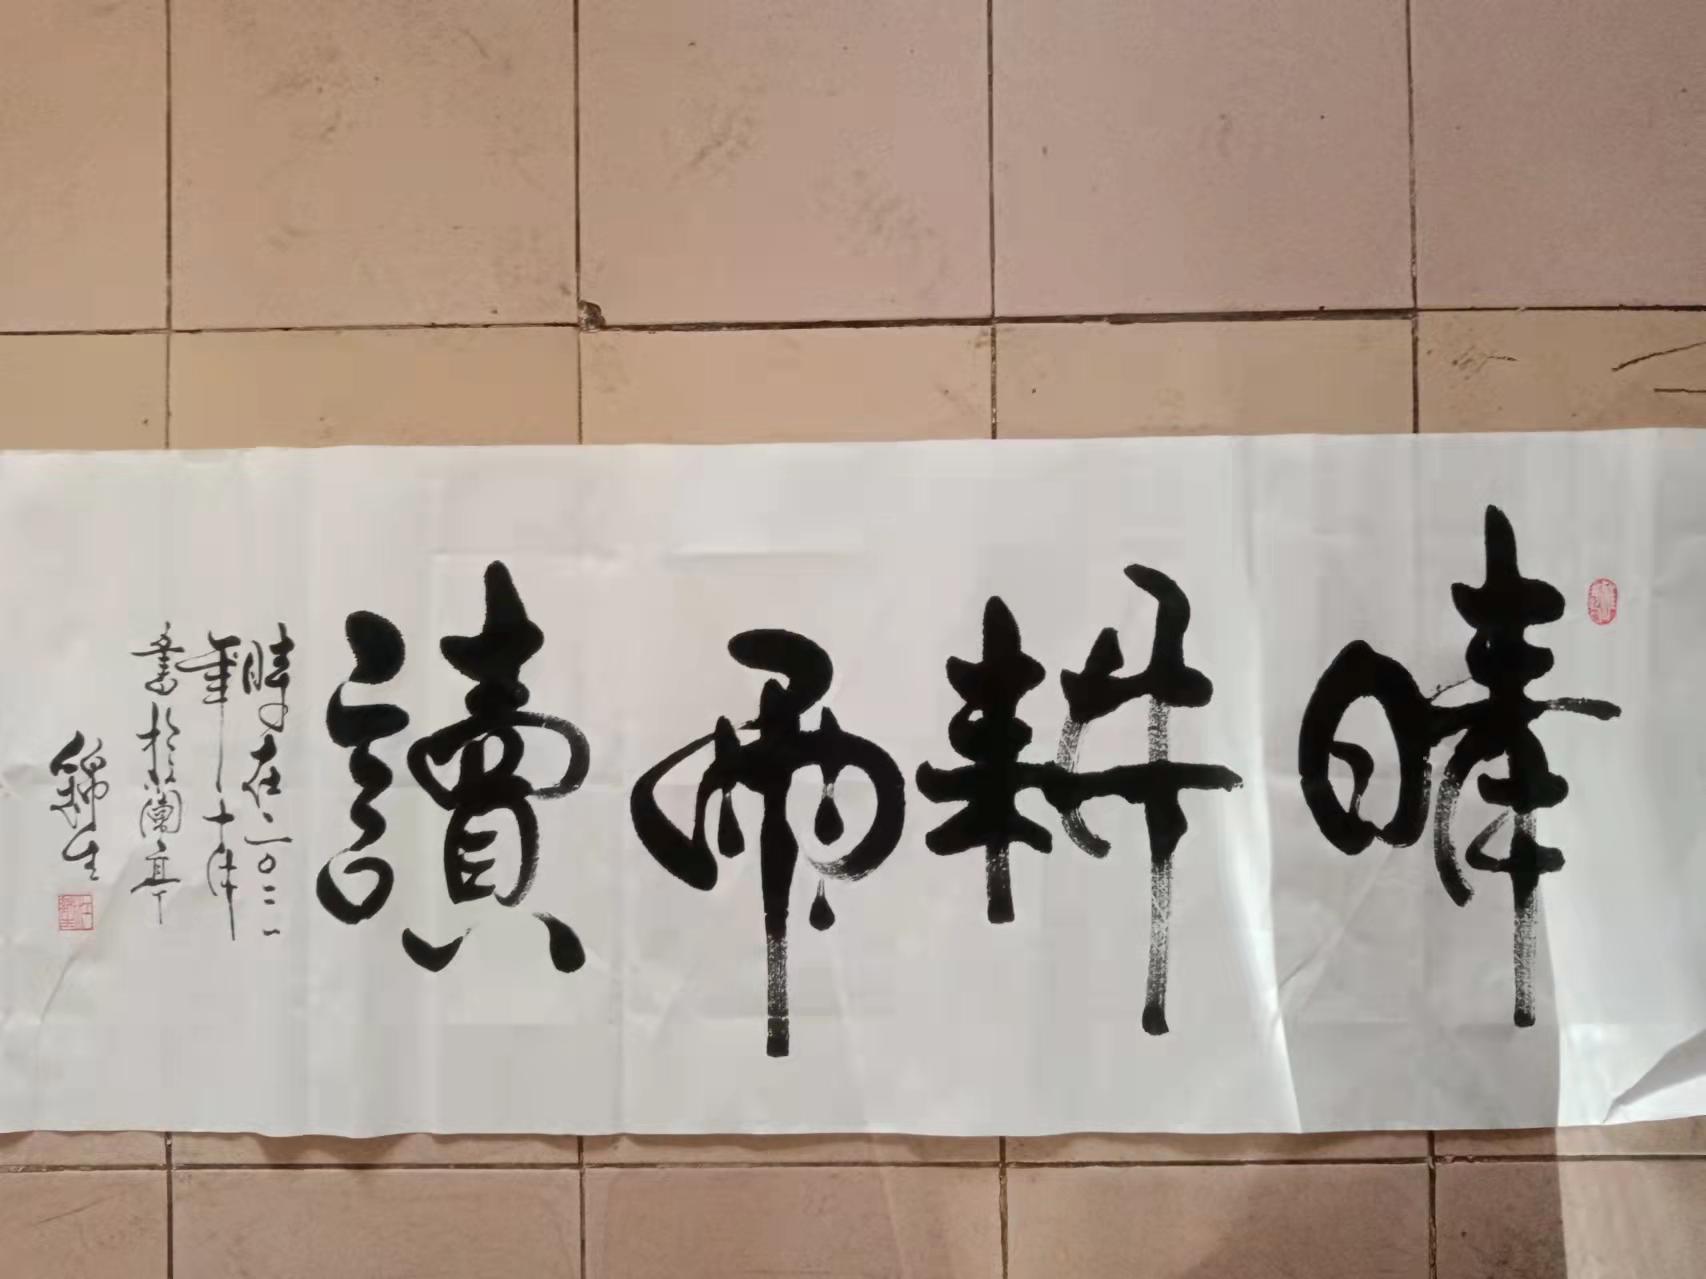 晴耕雨讀
時在二〇二二
年十月
書於蘭亭
錦生